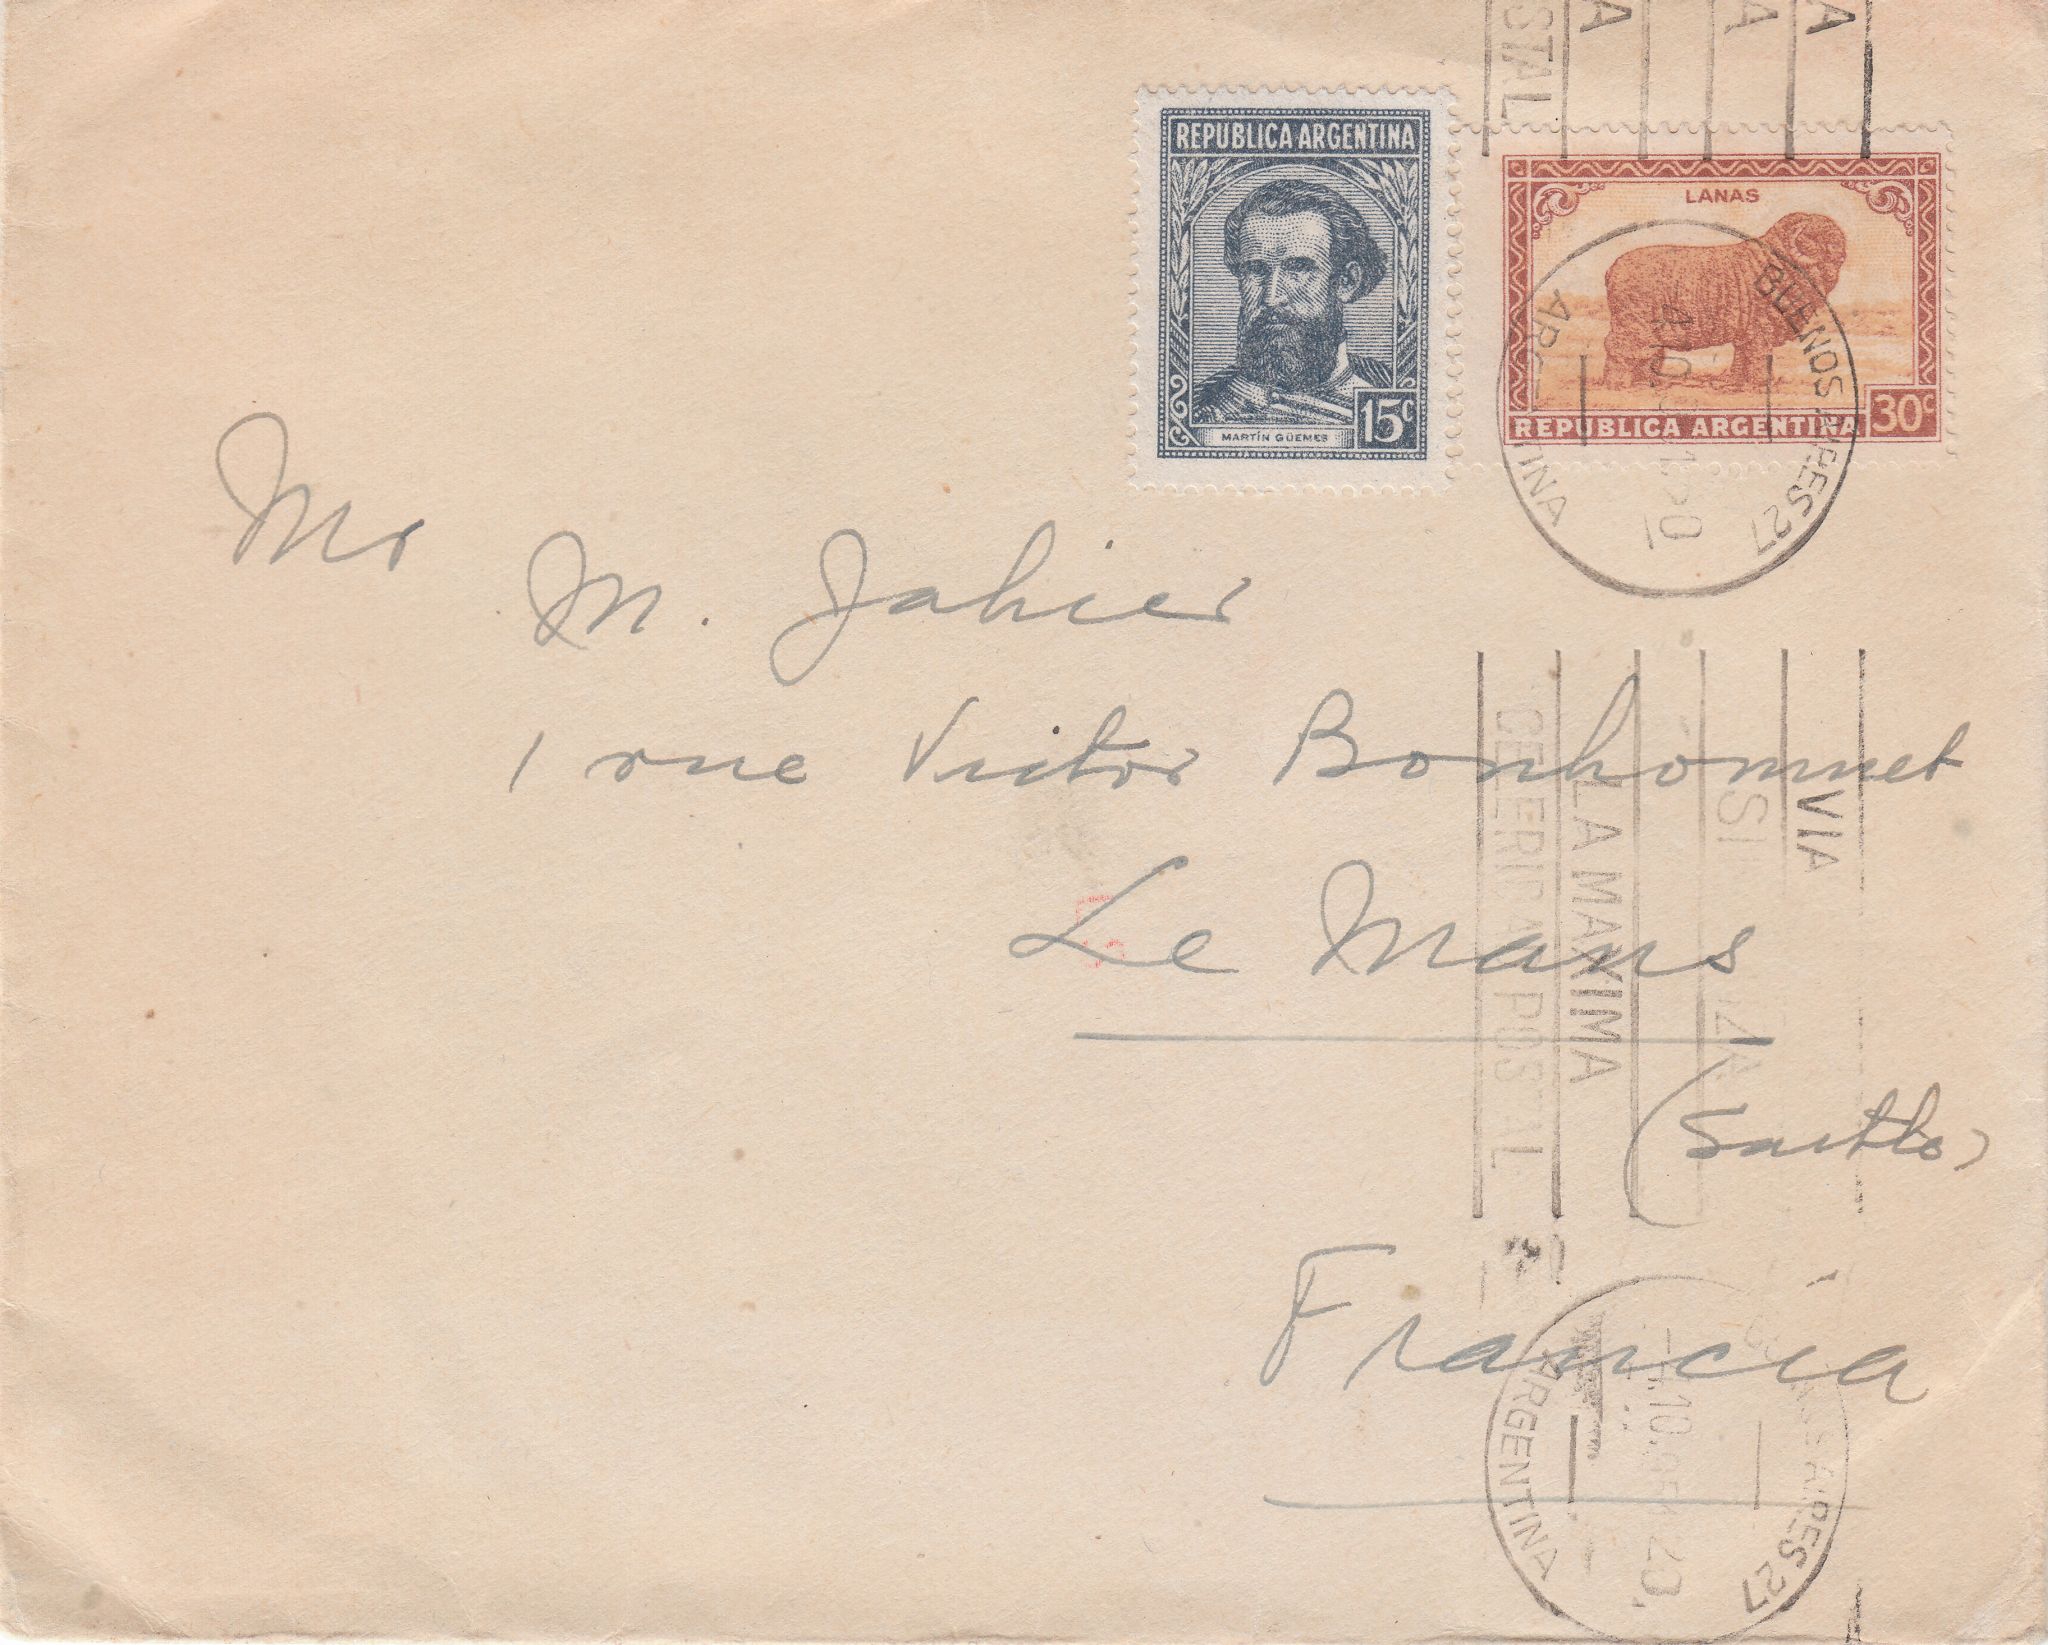 STAL
A
A
A
REPUBLICA ARGENTINA
15c
MARTÍN GÜEMES
LANAS
REPUBLICA ARGENTINA 30c
BUENOS AIRES 27
ARGENTINA
Mr
M. Jahier
1 rue Victor Bonhommet
Le Mans
(Sarthe)
Francia
VIA
LA MAXIMA
CELERIDAD POSTAL
BUENOS AIRES 27
ARGENTINA